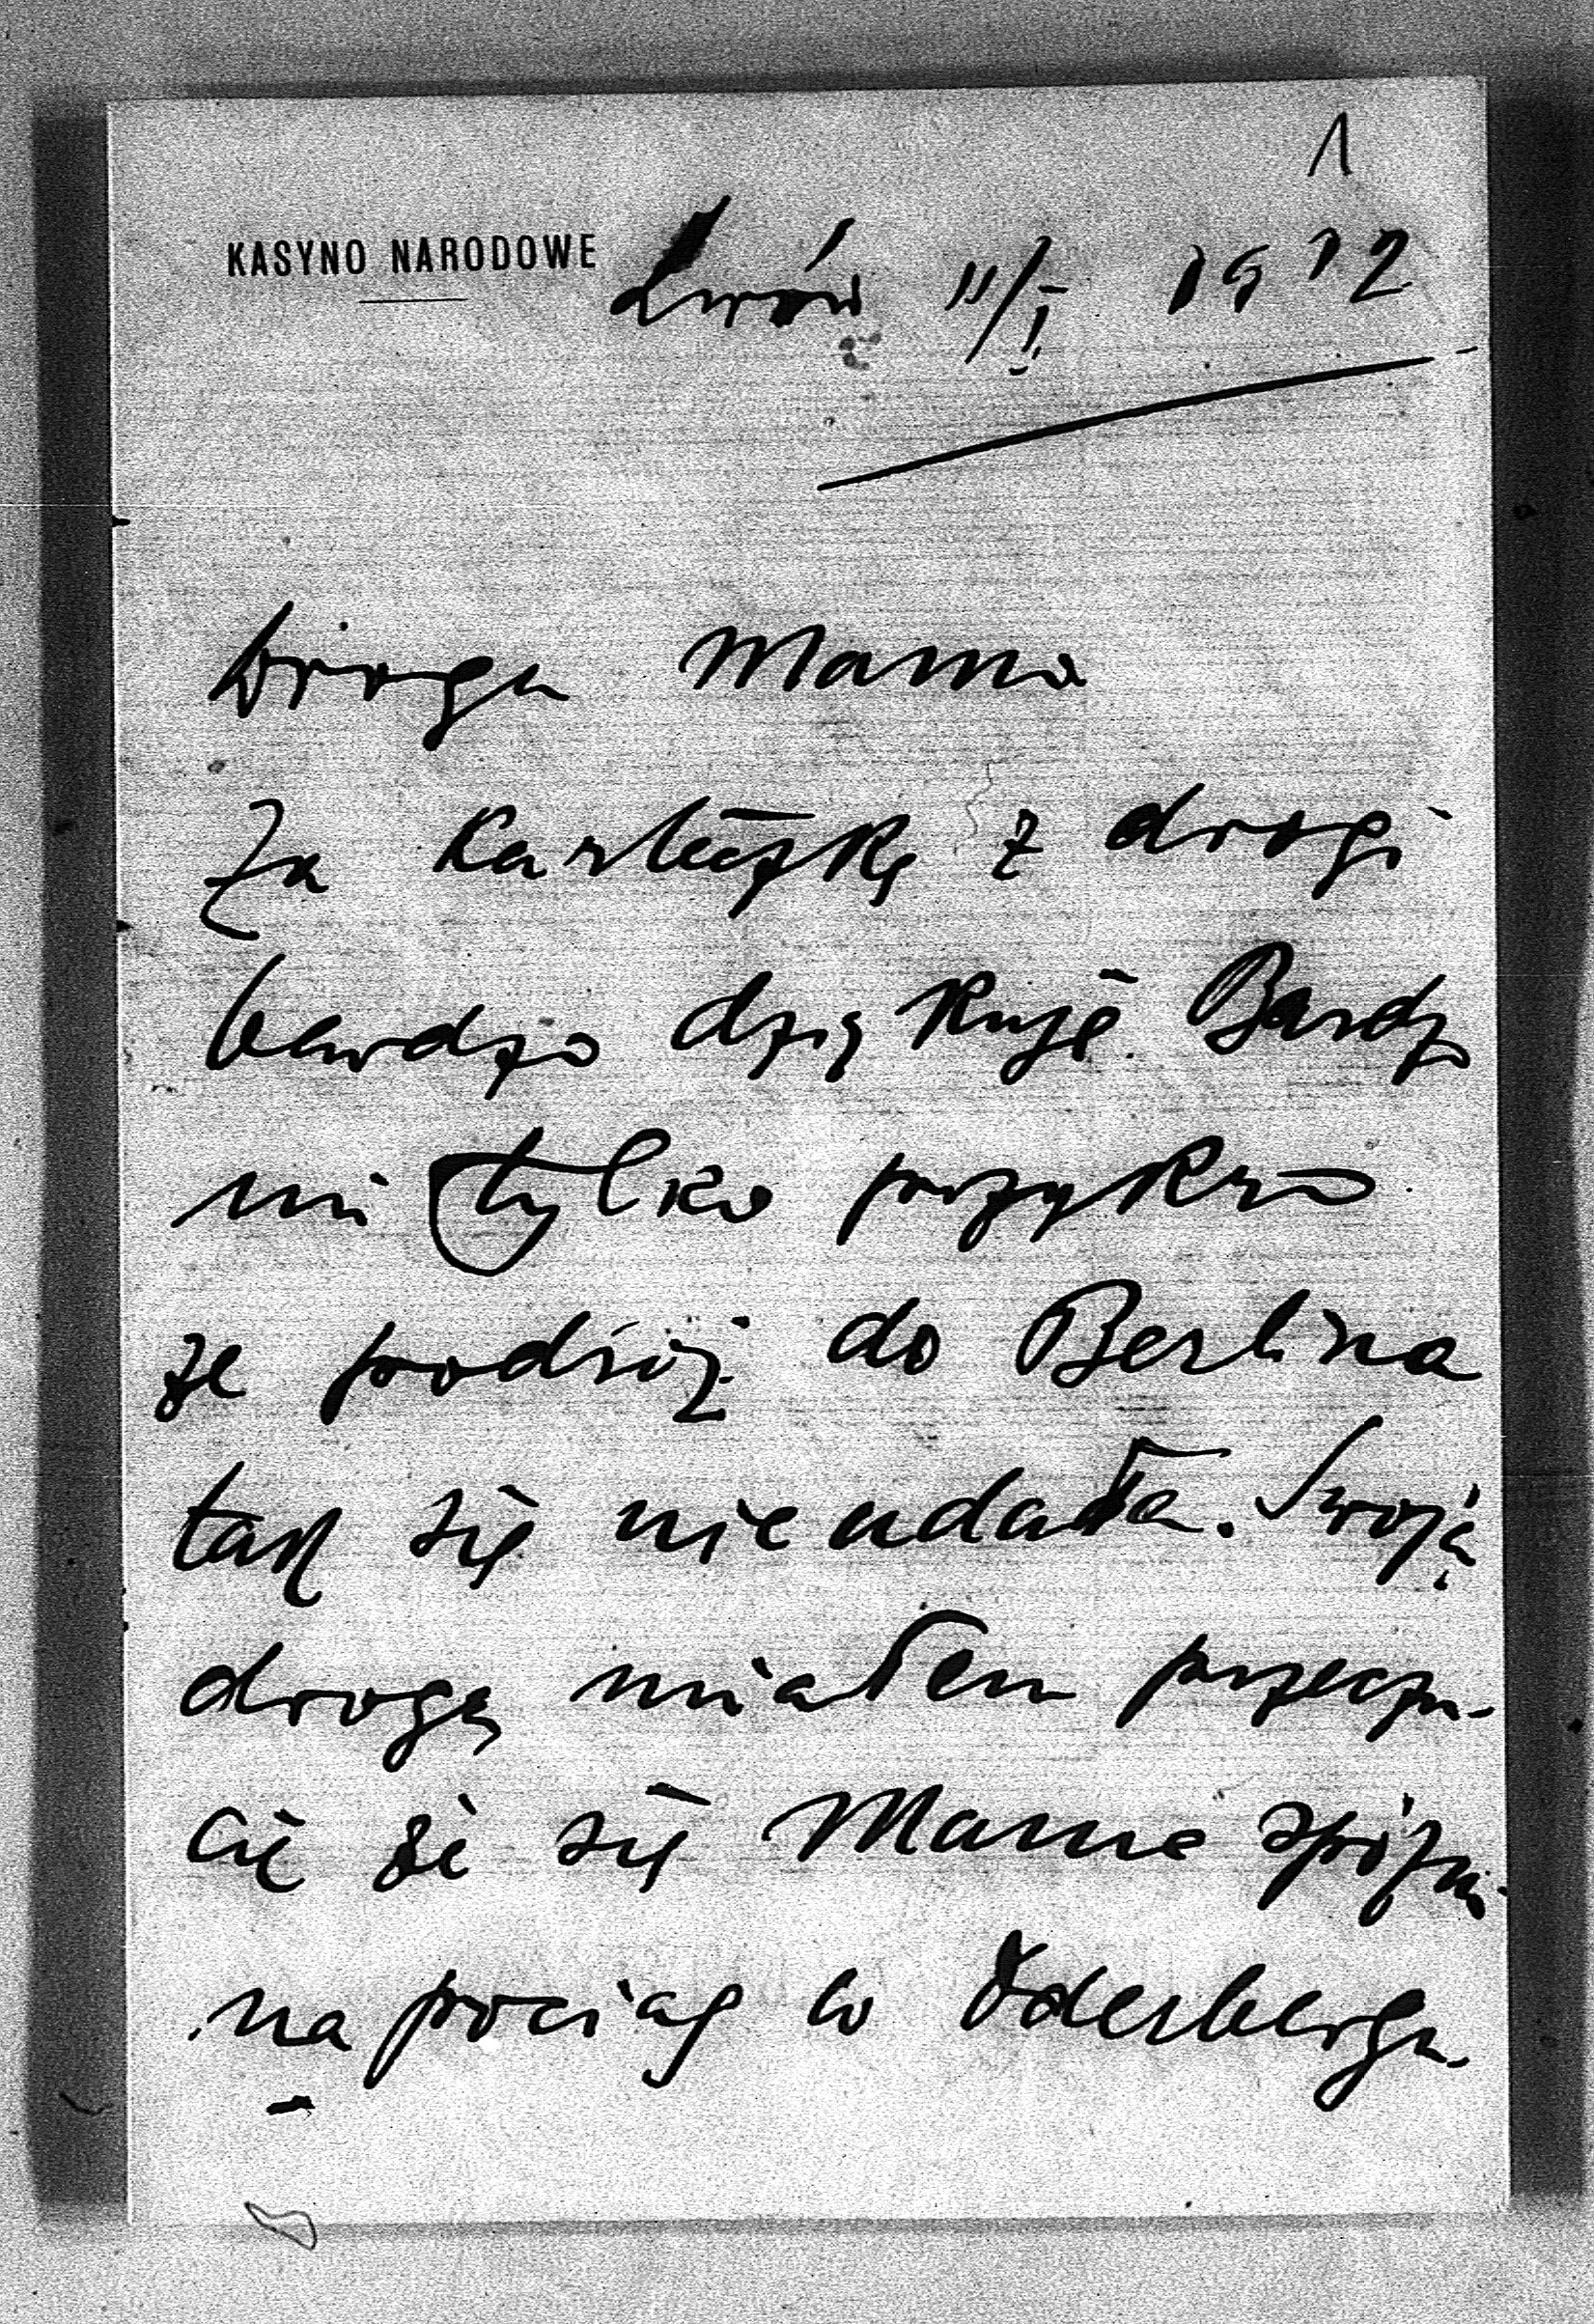 1
KASYNO NARODOWE Lwów 11/I 1912
Droga Mamo
Za karteczkę z drogi
bardzo dziękuję. Bardzo
mi tylko przykro
że podróż do Berlina
tak się nie udała. Swoją
drogą miałem przeczu-
cie że się Mama spóźni
na pociąg w Oderbergu